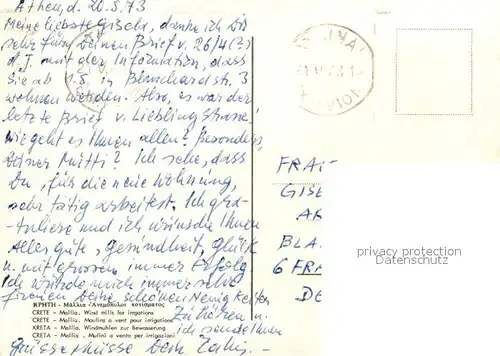 Athen, d. 20.5.73
Meine liebste Gisela, danke ich Dir
sehr für Deinen Brief v. 26/4(?)
d.J. mit der Information, dass
Sie ab 1.5. in Blanchardstr. 3
wohnen werden. Also, es war der
letzte Brief v. Lieblingstrasse,
wie geht es Ihnen allen? Besonders,
Deiner Mutti? Ich sehe, dass
Du, für die neue Wohnung,
sehr tätig arbeitest. Ich gra-
tuliere und ich wünsche Ihnen
alles gute, Gesundheit, Glück
u. mit grossem immer Erfolg
Ich würde mich immer sehr
freuen Deine schönen Neuigkeiten
zu hören u.
ich sende Ihnen
Grüsse Küsse Dein
ΚΡΗΤΗ - Μάλλια - Ἀνεμόμυλοι ποτίσματος
CRETE - Mallia. Wind mills for irrigations
CRETE - Mallia. Moulins a vent pour irrigations
KRETA - Mallia. Windmühlen zur Bewasserung
CRETA - Mallia. Mulini a vento per irrigazioni
FRA
GISE
BLA
6 FRA
DE
privacy protection
AnsichtskartenCenter.com